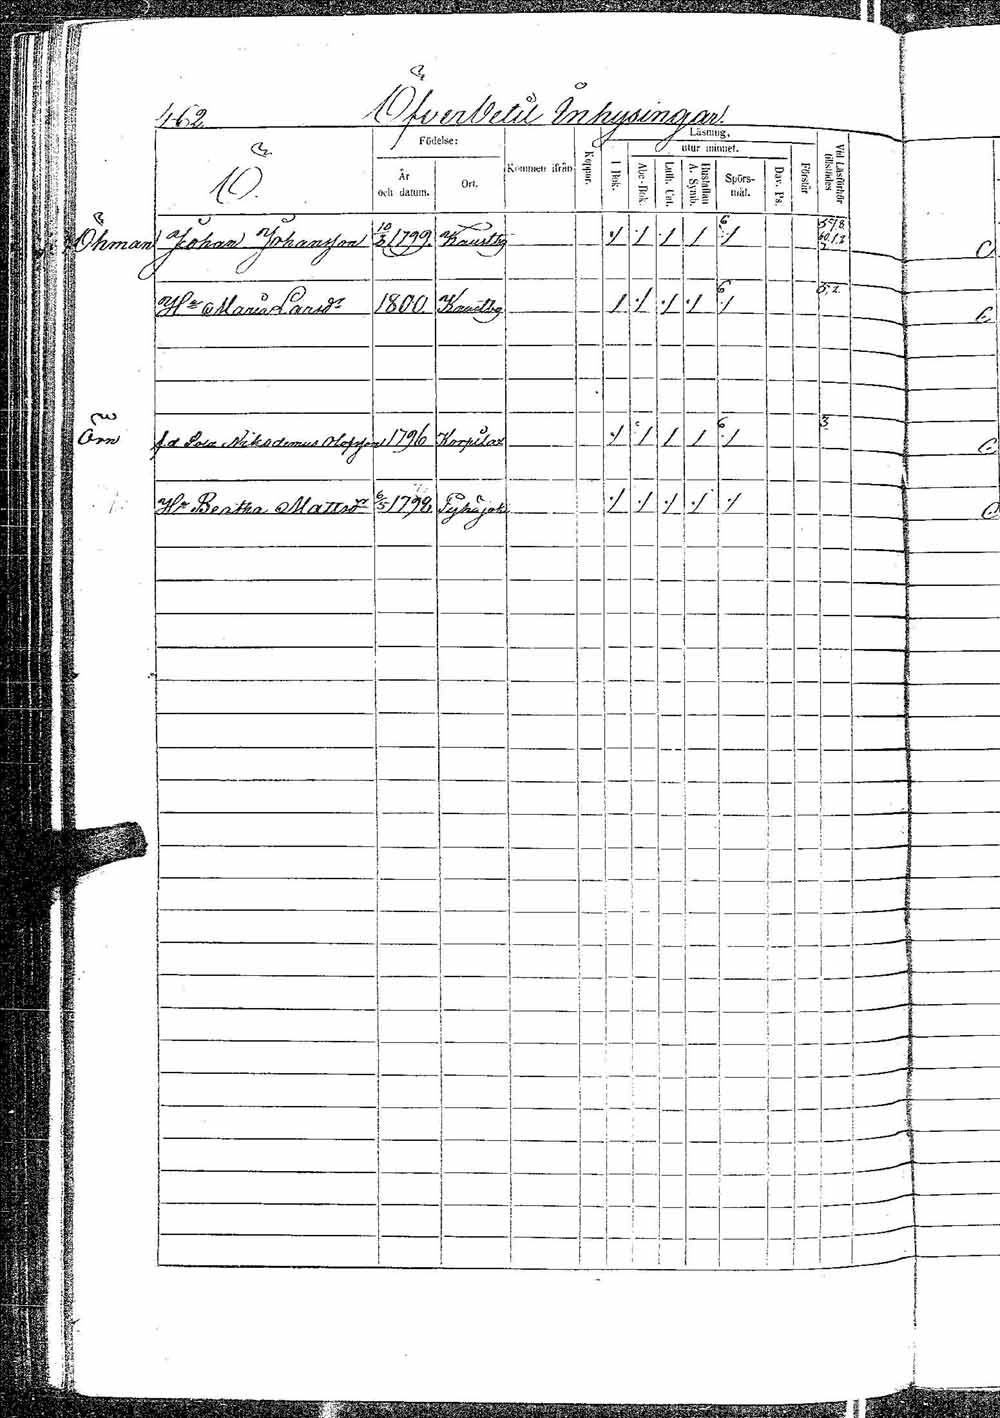 462 Öfver Vetil Inhysingar.
Ö.
Födelse:
År och datum.
Ort.
Kommen ifrån
Koppor.
Läsning,
I Bok.
utur minnet.
Abc-Bok
Luth. Cat.
Hustaflan A. Symb.
Spörs-mål.
Dav. Ps.
Förstår
Vid Läsförhör tillstädes
Öhman Johan Johansson 10/3 1799 Kaustby
Hu Maria Larsdr 1800 Kaustby 52
Örn f.d Sold Nikodemus Olofsson 1796 Korpilax 3
Hu Beatha Mattsdr 6/5 1792 Pyhäjoki